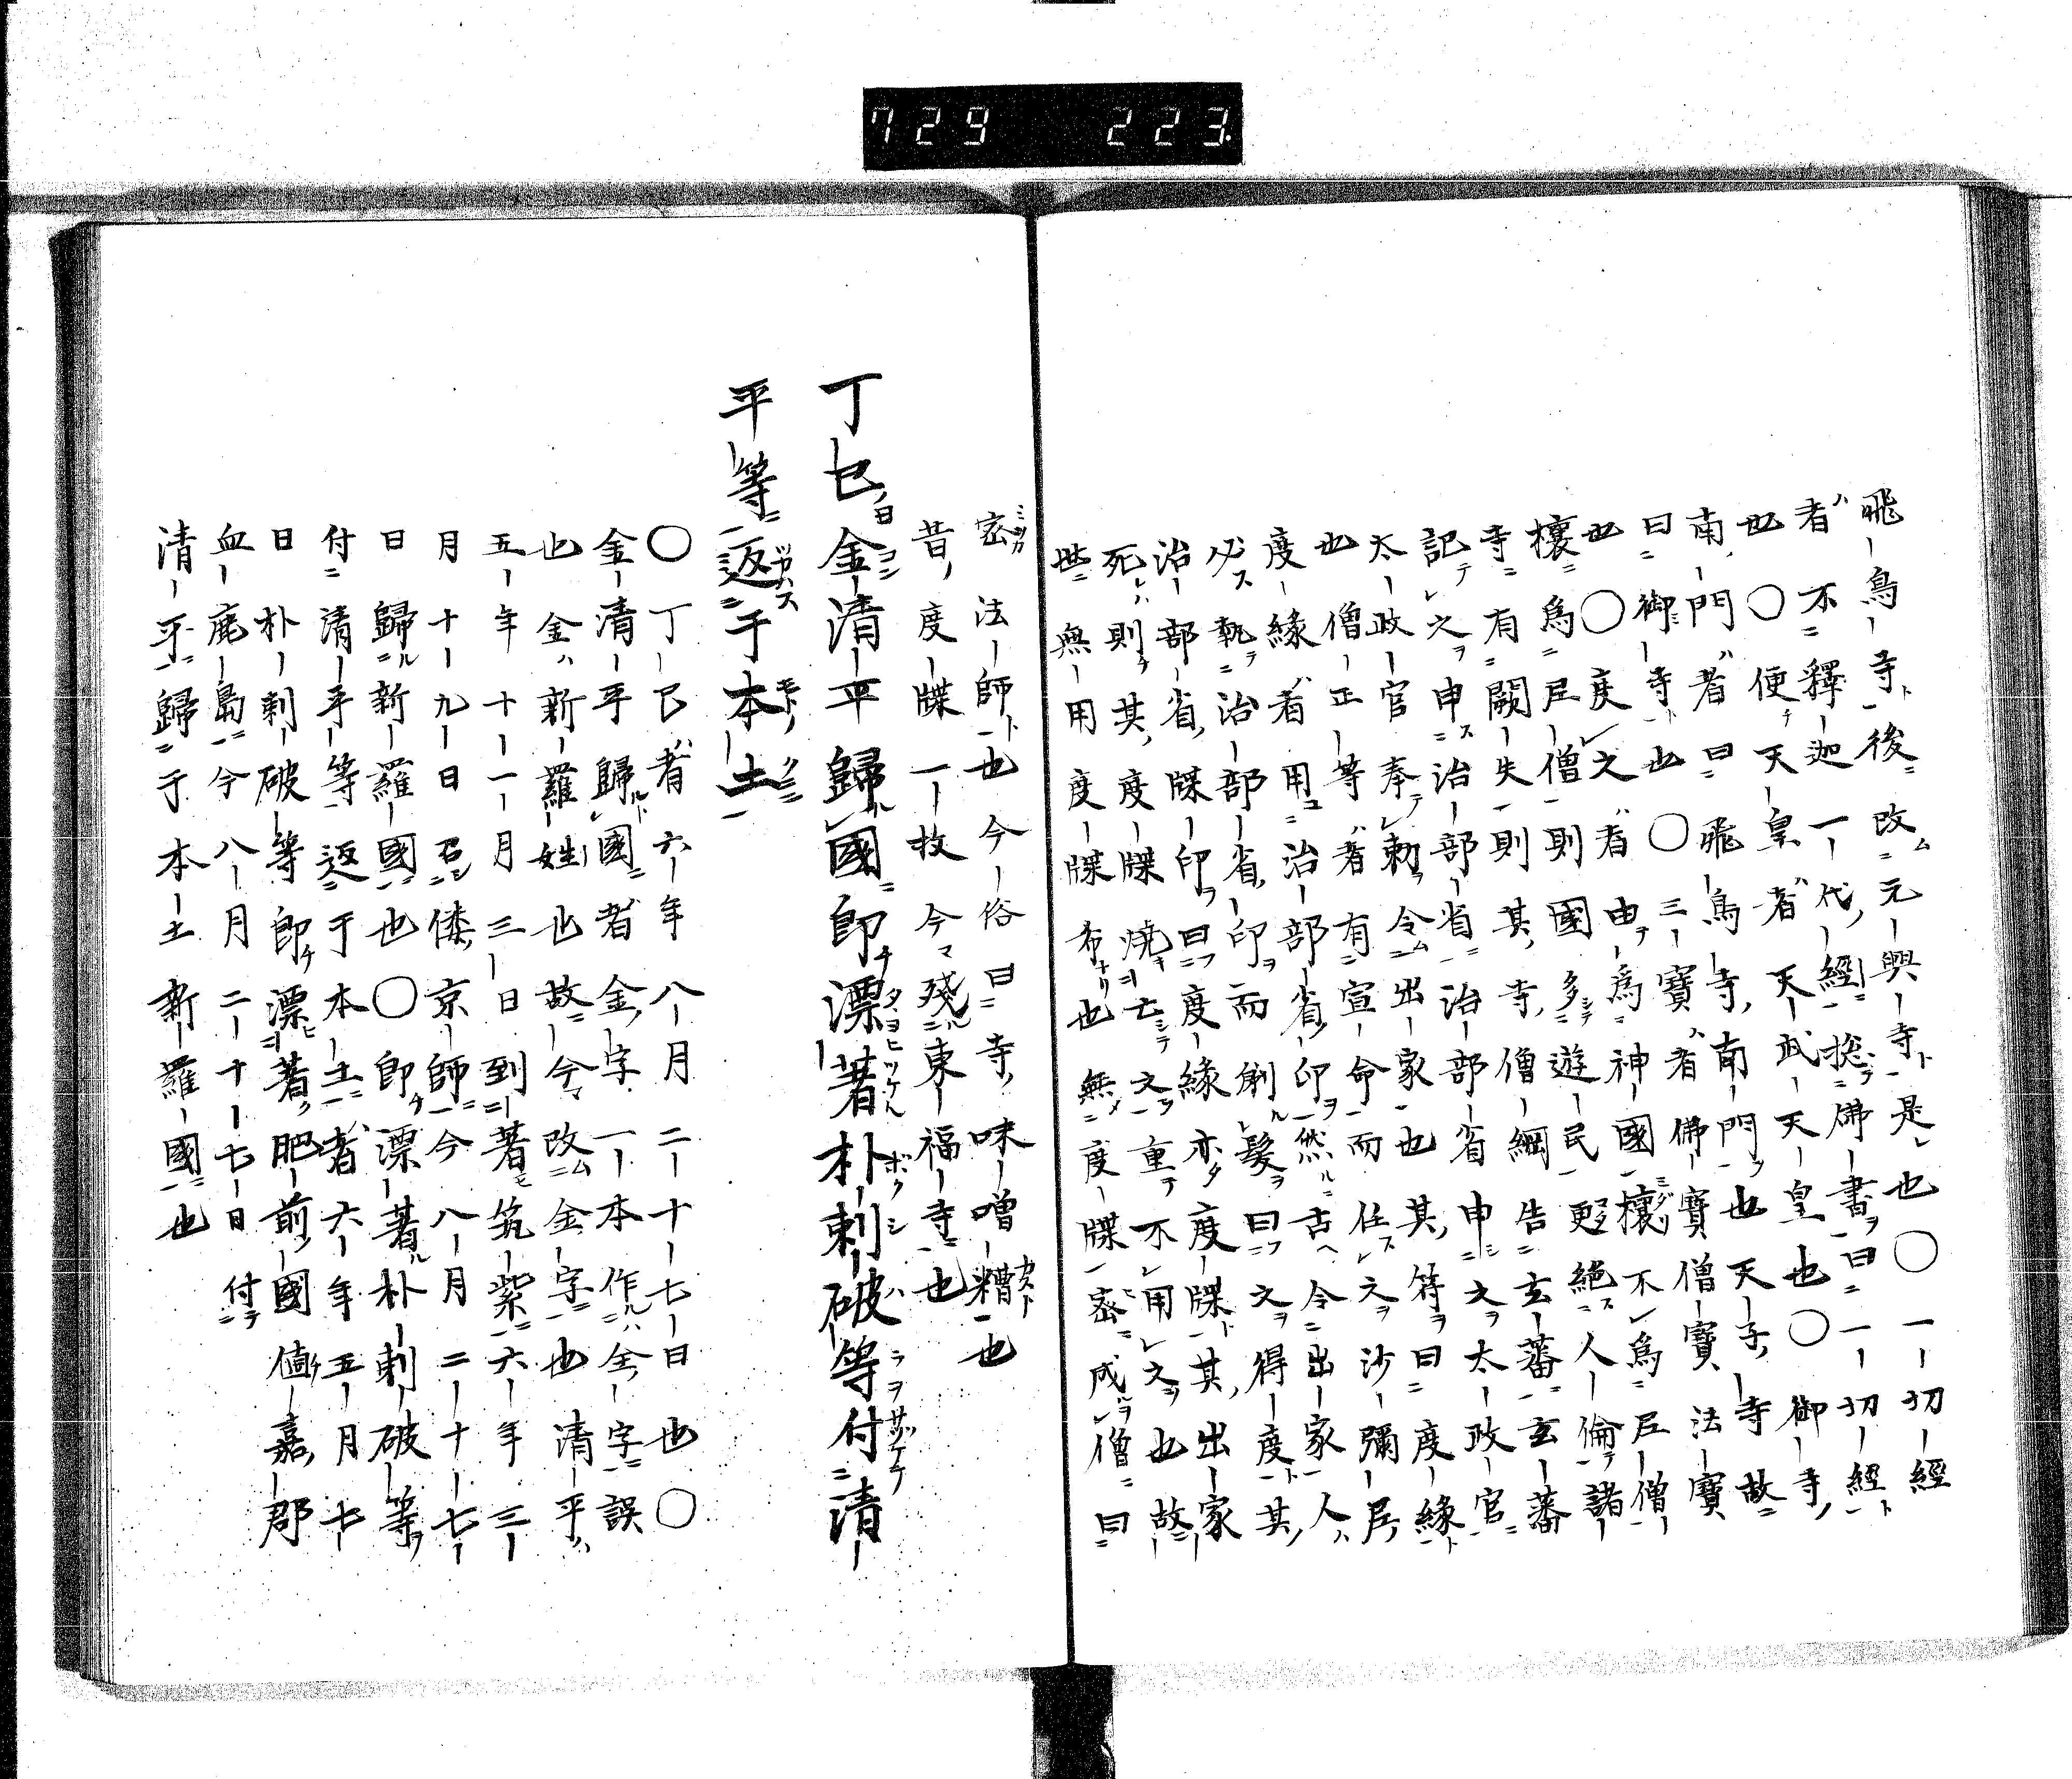 729 223
飛鳥寺後改元興寺是也〇一切經
者不釋迦一代經揔佛書曰一切經
也〇便天皇者天武天皇也〇御寺
南門者曰飛鳥寺南門也天子寺故
曰御寺也〇三寶者佛寶僧寶法寶
也〇度之者由爲神國穰不爲尼僧
穰爲尼僧則國多遊民更絕人倫諸
寺有闕失則其寺僧綱告玄蕃玄蕃
記之申治部省治部省申之太政官
太政官奉勅令出家也其符曰度緣
也僧正等者有宣命而任之沙彌尼
度緣者用治部省印然古令出家人
必執治部省印而剃髮曰之得度其
治部省牒印曰度緣亦度牒其出家
死則其度牒燒亡之重不用之也故
世無用度牒布也無度牒密成僧曰
密法師也今俗曰寺味噌糟也
昔度牒一枚今殘東福寺也
丁巳金清平歸國即漂著朴刺破等付清
平等返于本土
〇丁巳者六年八月二十七日也〇
金清平歸國者金字一本作全字誤
也金新羅姓也故今改金字也清平
五年十一月三日到著筑紫六年三
月十九日召倭京師今八月二十七
日歸新羅國也〇即漂著朴刺破等
付清平等返于本土者六年五月七
日朴刺破等即漂著肥前國値嘉郡
血鹿島今八月二十七日付
清平歸于本土新羅國也